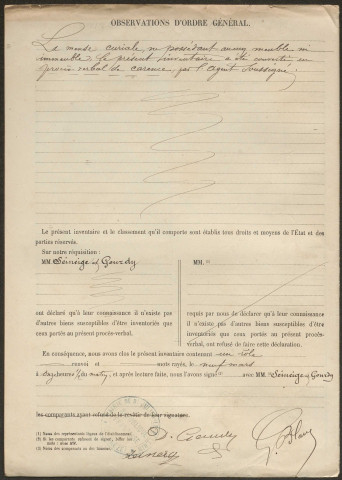 OBSERVATIONS D'ORDRE GÉNÉRAL.
La mense curiale ne possédant aucun meuble ni
immeuble, le présent inventaire a été converti en
procès verbal de carence par l'agent soussigné.
Le présent inventaire et le classement qu'il comporte sont établis tous droits et moyens de l'État et des
parties réservés.
Sur notre réquisition :
MM. et Gourdy
ont déclaré qu'à leur connaissance il n'existe pas
d'autres biens susceptibles d'être inventoriés que
ceux portés au présent procès-verbal.
MM. (2)
requis par nous de déclarer qu'à leur connaissance
il n'existe pas d'autres biens susceptibles d'être
inventoriés que ceux portés au présent procès-verbal,
ont refusé de faire cette déclaration.
En conséquence, nous avons clos le présent inventaire contenant un rôle
renvoi et mots rayés le neuf mars
à du matin, et après lecture faite, nous l'avons signé avec MM. et Gourdy
les comparants ayant refusé de la revêtir de leur signature.
(1) Noms des représentants légaux de l'établissement.
(2) Si les comparants refusent de signer, biffer les
mots : avec MM.
(3) Noms des comparants ou des témoins.